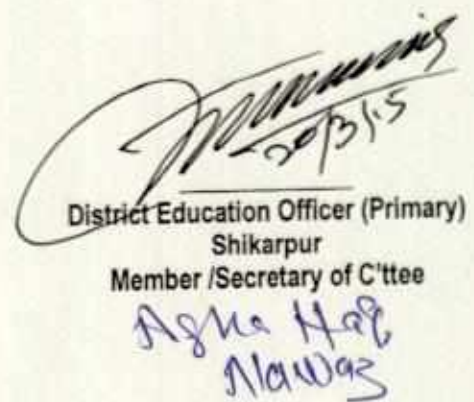 30/3/15
District Education Officer (Primary)
Shikarpur
Member /Secretary of C'ttee
Agha Haq
Nawaz